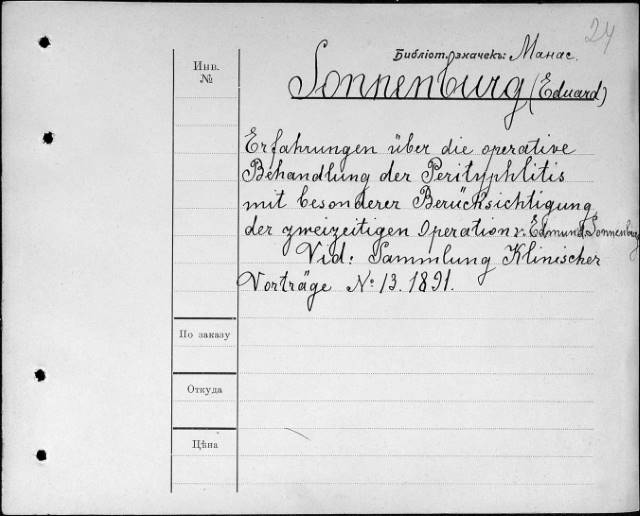 24
Библіот. значекъ: Манас.
Инв. №
Sonnenburg (Eduard)
Erfahrungen über die operative
Behandlung der Perityphlitis
mit besonderer Berücksichtigung
der zweizeitigen Operation v. Edmund Sonnenburg
Vid: Sammlung Klinischer
Vorträge No 13. 1891.
По заказу
Откуда
Цѣна